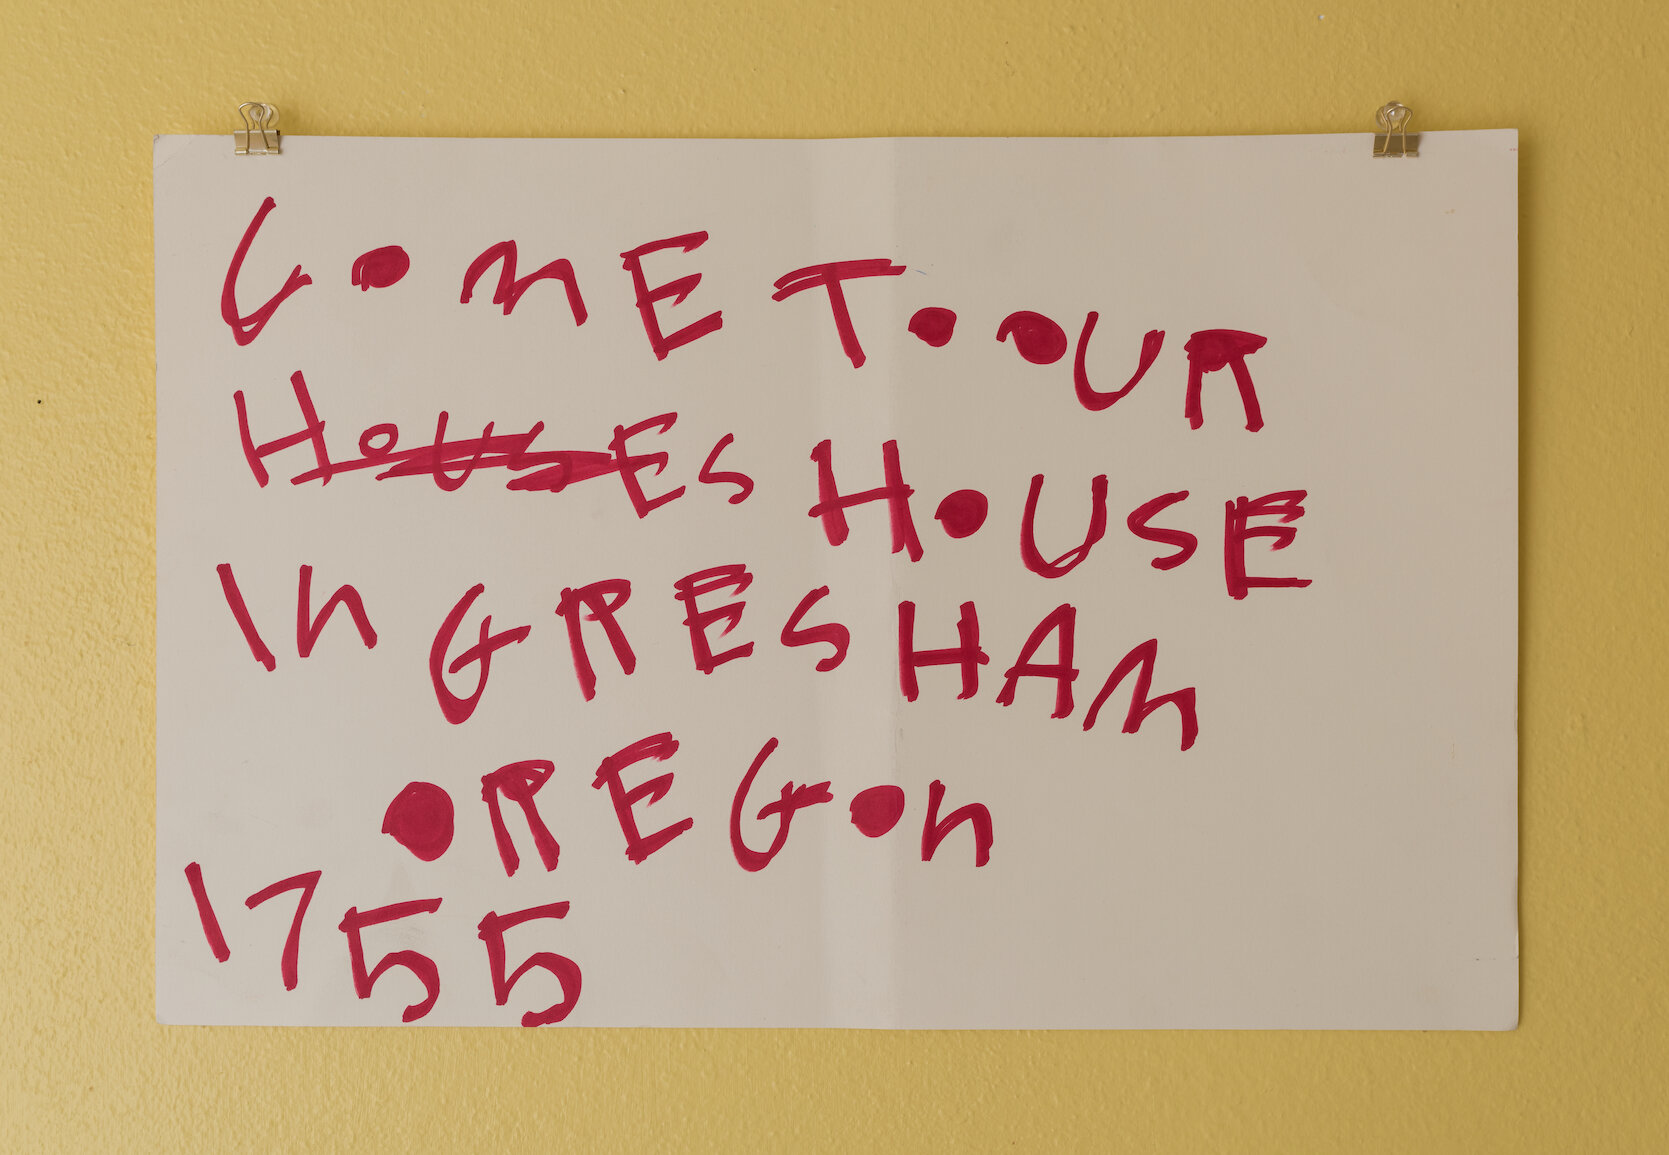 COME TO OUR
HOUSES HOUSE
IN GRESHAM
OREGON
1755